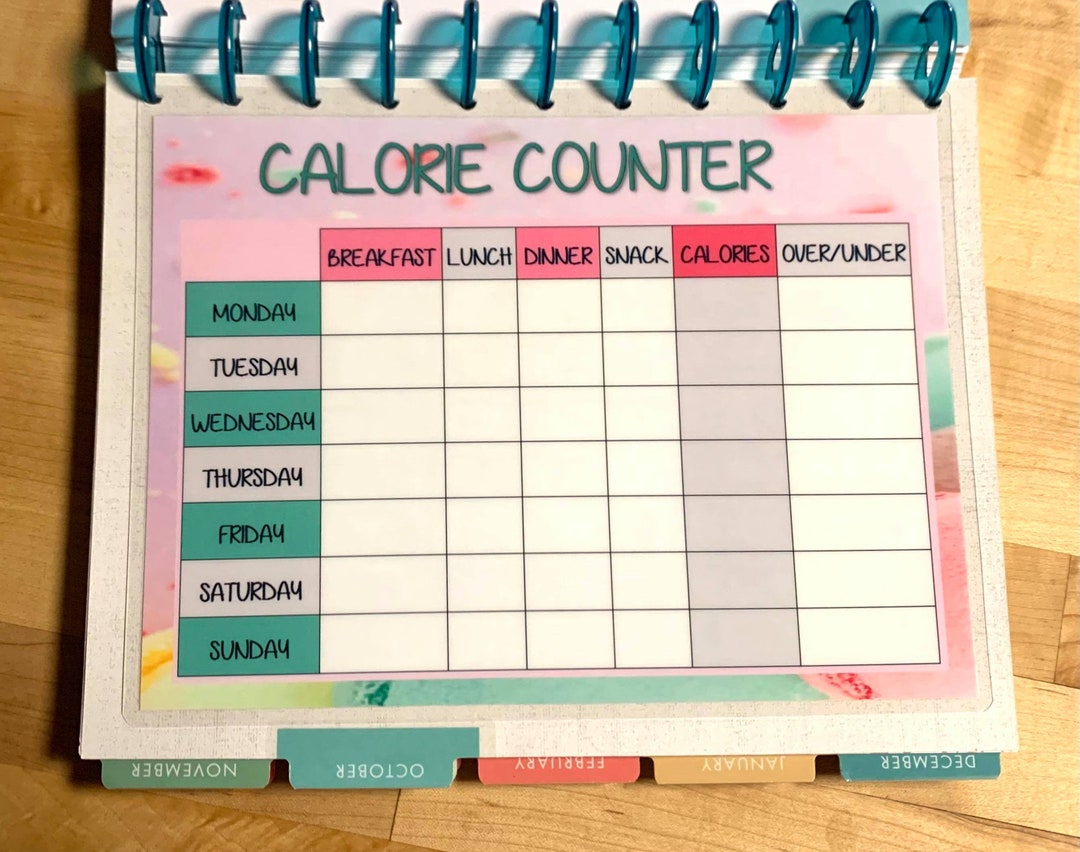 CALORIE COUNTER
BREAKFAST LUNCH DINNER SNACK CALORIES OVER/UNDER
MONDAY
TUESDAY
WEDNESDAY
THURSDAY
FRIDAY
SATURDAY
SUNDAY
NOVEMBER OCTOBER FEBRUARY JANUARY DECEMBER